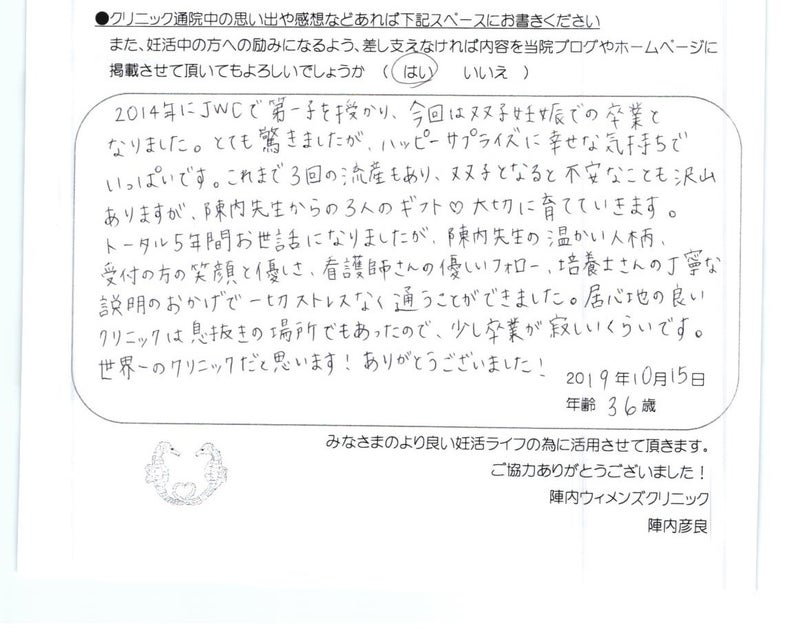 ●クリニック通院中の思い出や感想などあれば下記スペースにお書きください
また、妊活中の方への励みになるよう、差し支えなければ内容を当院ブログやホームページに
掲載させて頂いてもよろしいでしょうか （ はい　いいえ ）
2014年にJWCで第一子を授かり、今回は双子妊娠での卒業と
なりました。とても驚きましたが、ハッピーサプライズに幸せな気持ちで
いっぱいです。これまで3回の流産もあり、双子となると不安なことも沢山
ありますが、陳内先生からの3人のギフト♡大切に育てていきます。
トータル5年間お世話になりましたが、陳内先生の温かい人柄、
受付の方の笑顔と優しさ、看護師さんの優しいフォロー、培養士さんの丁寧な
説明のおかげで一切ストレスなく通うことができました。居心地の良い
クリニックは息抜きの場所でもあったので、少し卒業が寂しいくらいです。
世界一のクリニックだと思います！ありがとうございました！
2019年10月15日
年齢 36歳
みなさまのより良い妊活ライフの為に活用させて頂きます。
ご協力ありがとうございました！
陣内ウィメンズクリニック
陣内彦良